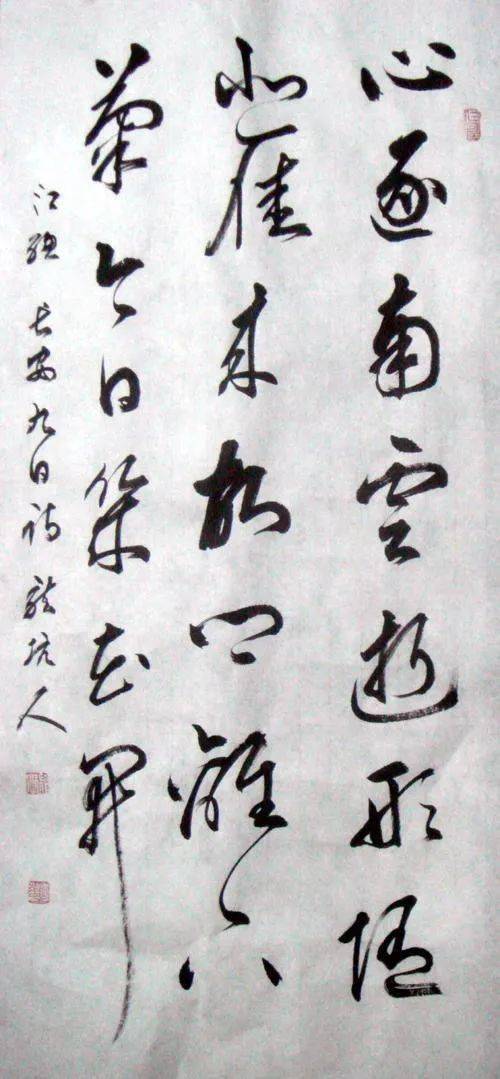 心逐南雲逝形隨
北雁来故鄉籬下
菊今日幾花開
江總長安九日诗 龍坑人